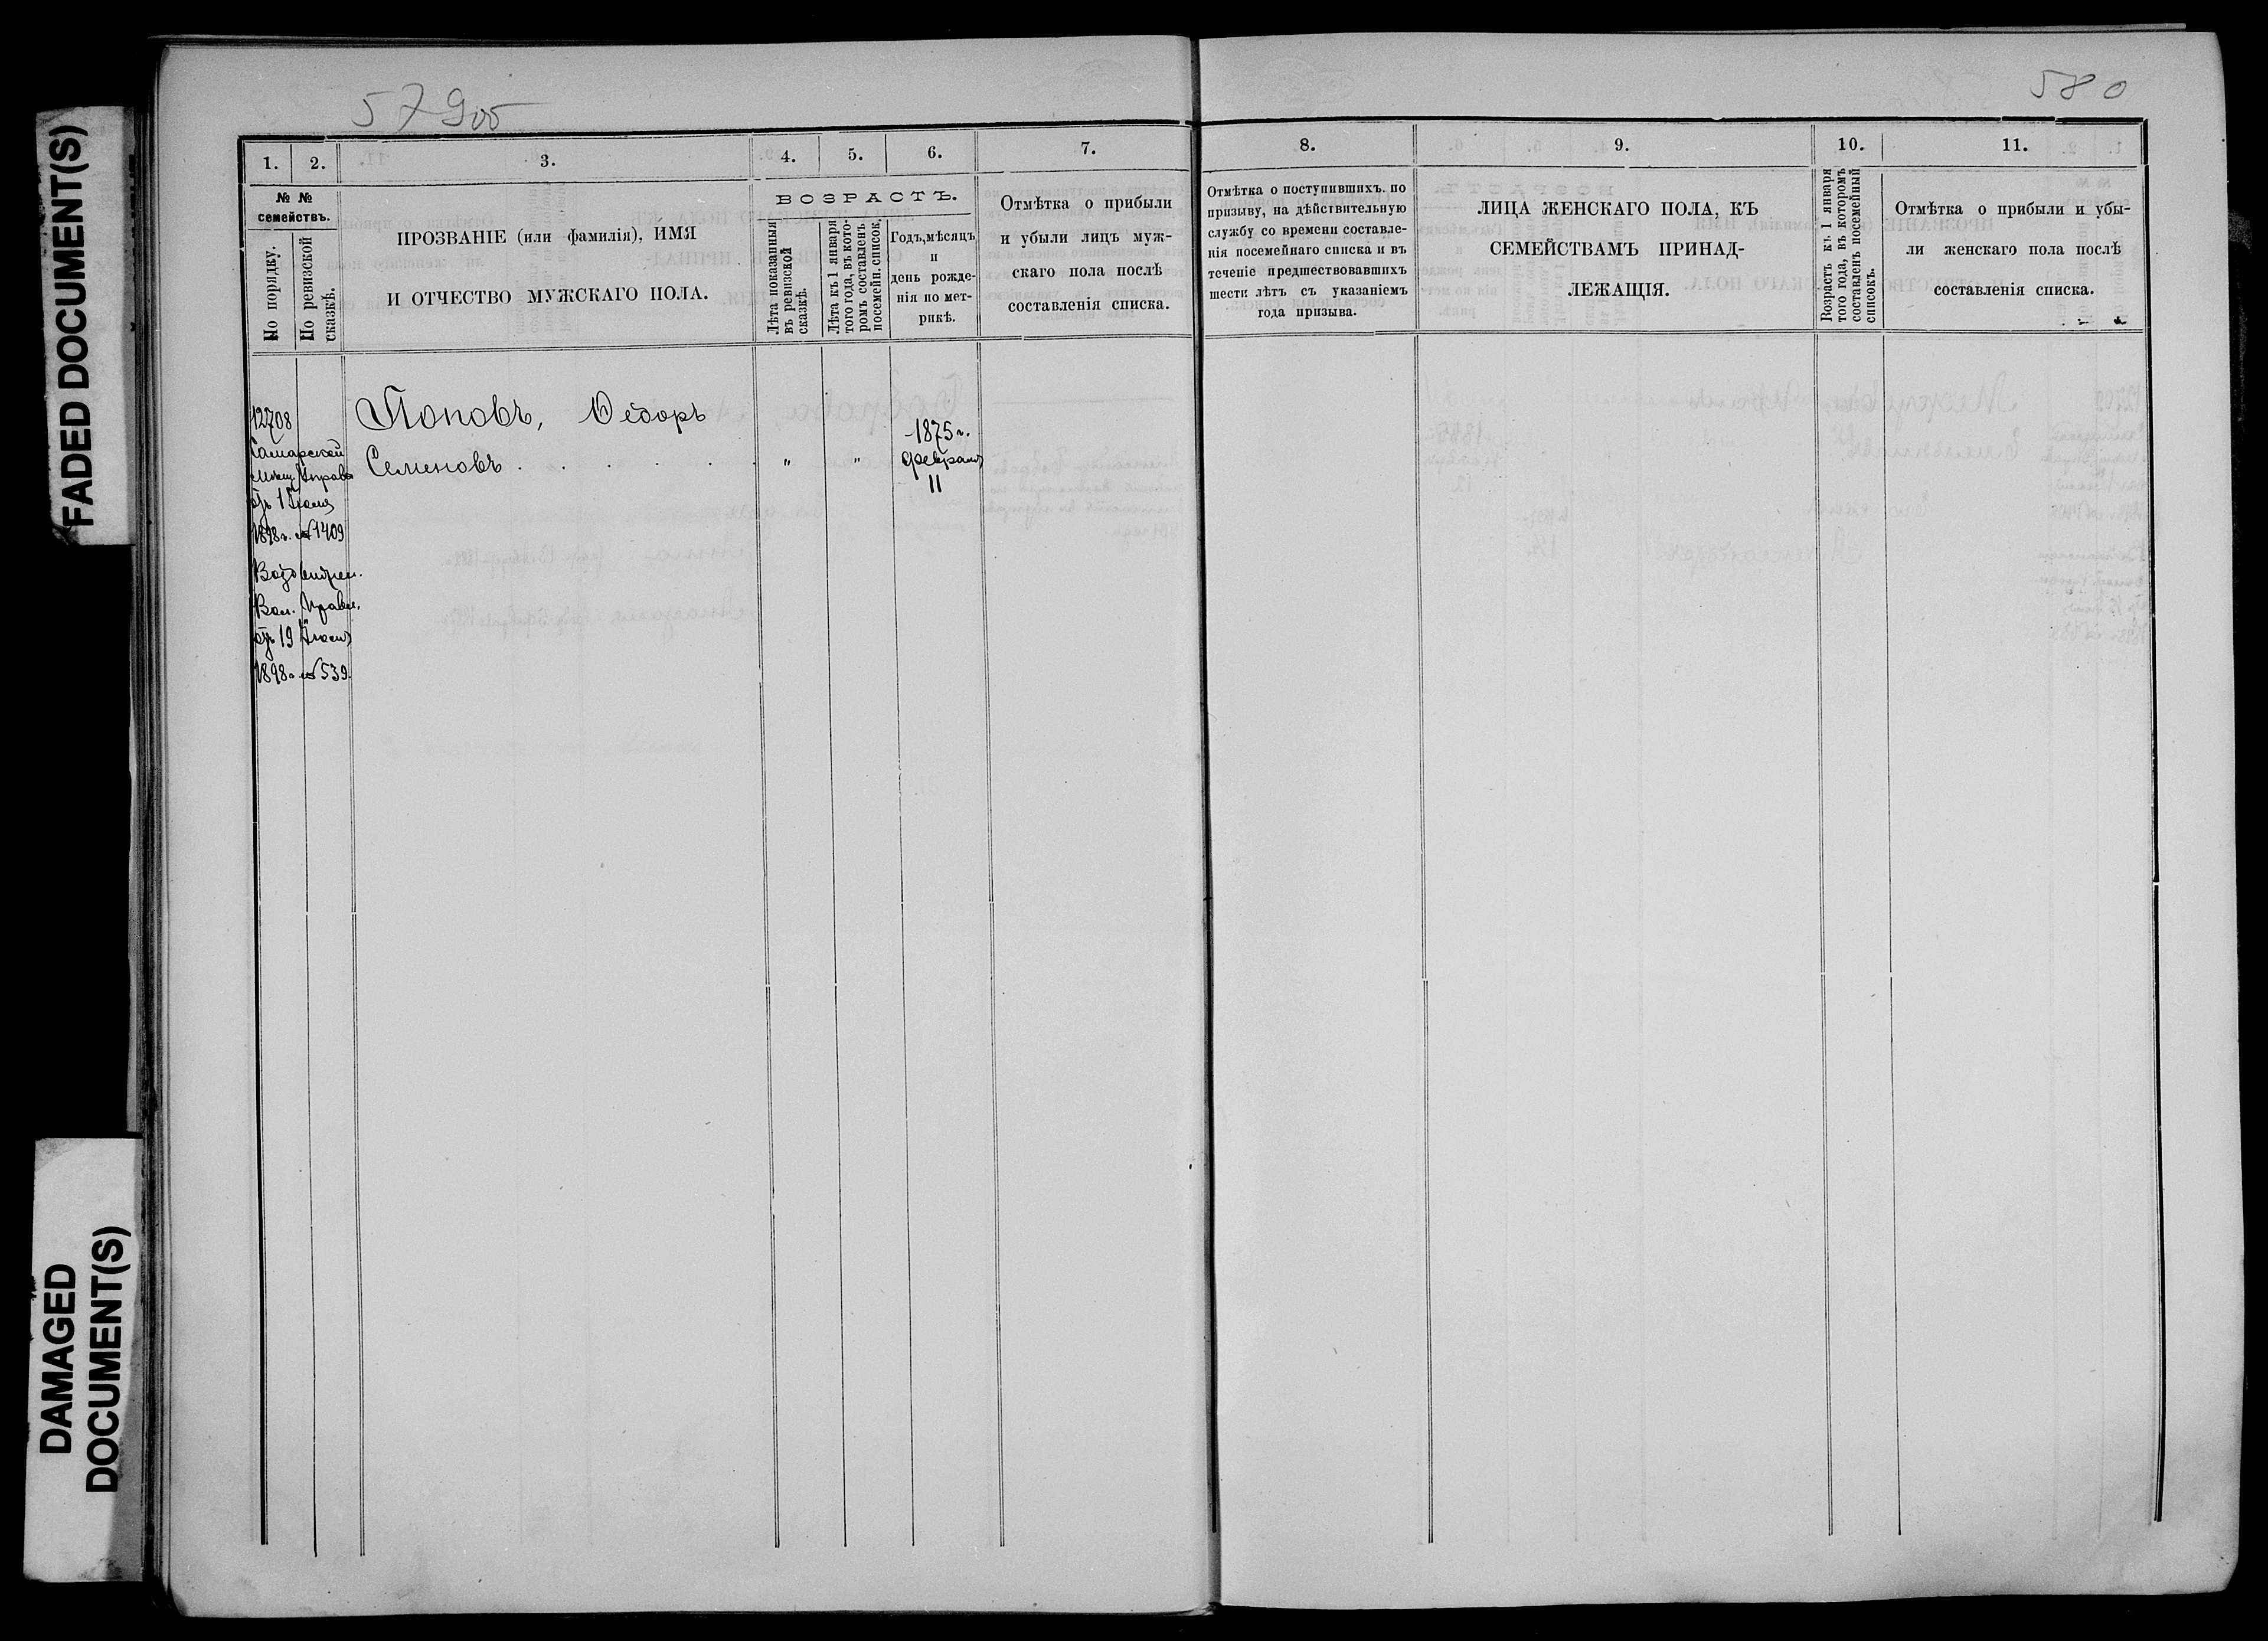 FADED DOCUMENT(S)
DAMAGED
DOCUMENT(S)
579об
580
1. 2. 3. 4. 5. 6. 7.
№ №
семействъ.
По порядку.
По ревизской
сказкѣ.
ПРОЗВАНІЕ (или фамилія), ИМЯ
И ОТЧЕСТВО МУЖСКАГО ПОЛА.
ВОЗРАСТЪ.
Лѣта показанныя
въ ревизской
сказкѣ.
Лѣта къ 1 января
того года, въ кото-
ромъ составленъ
посемейн. список.
Годъ, мѣсяцъ
и
день рожде-
нія по мет-
рикѣ.
Отмѣтка о прибыли
и убыли лицъ муж-
скаго пола послѣ
составленія списка.
8. 9. 10. 11.
Отмѣтка о поступившихъ. по
призыву, на дѣйствительную
службу со времени составле-
нія посемейнаго списка и въ
теченіе предшествовавшихъ
шести лѣтъ съ указаніемъ
года призыва.
ЛИЦА ЖЕНСКАГО ПОЛА, КЪ
СЕМЕЙСТВАМЪ ПРИНАД-
ЛЕЖАЩІЯ.
Возрастъ къ 1 января
того года, въ которомъ
составленъ посемейный
списокъ.
Отмѣтка о прибыли и убы-
ли женскаго пола послѣ
составленія списка.
12708
Самарской
Мѣщ. Управы
отъ 1 Іюля
1898 г. № 1409
Вол. Правл.
отъ 19
1898 г. № 539.
Поповъ, Ѳедоръ
Семеновъ . . . . . " "
1875 г.
Февраля
11